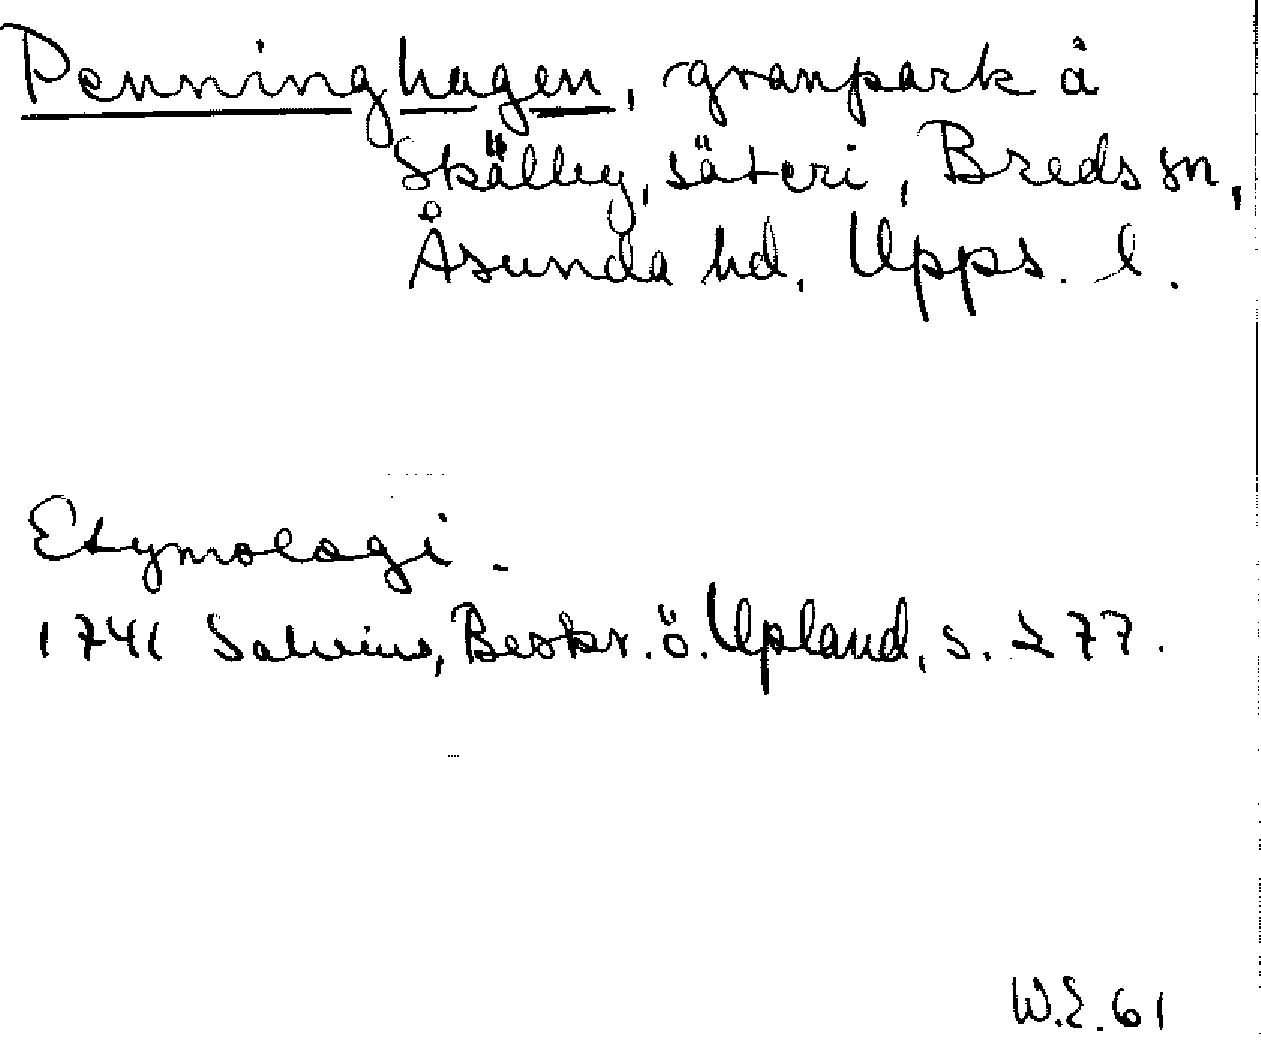 Penninghagen, granpark å
Skälby, säteri, Breds sn,
Åsunda hd, Upps. l.
Etymologi.
1741 Salvius, Beskr. ö. Upland, s. 277.
W.E. 61